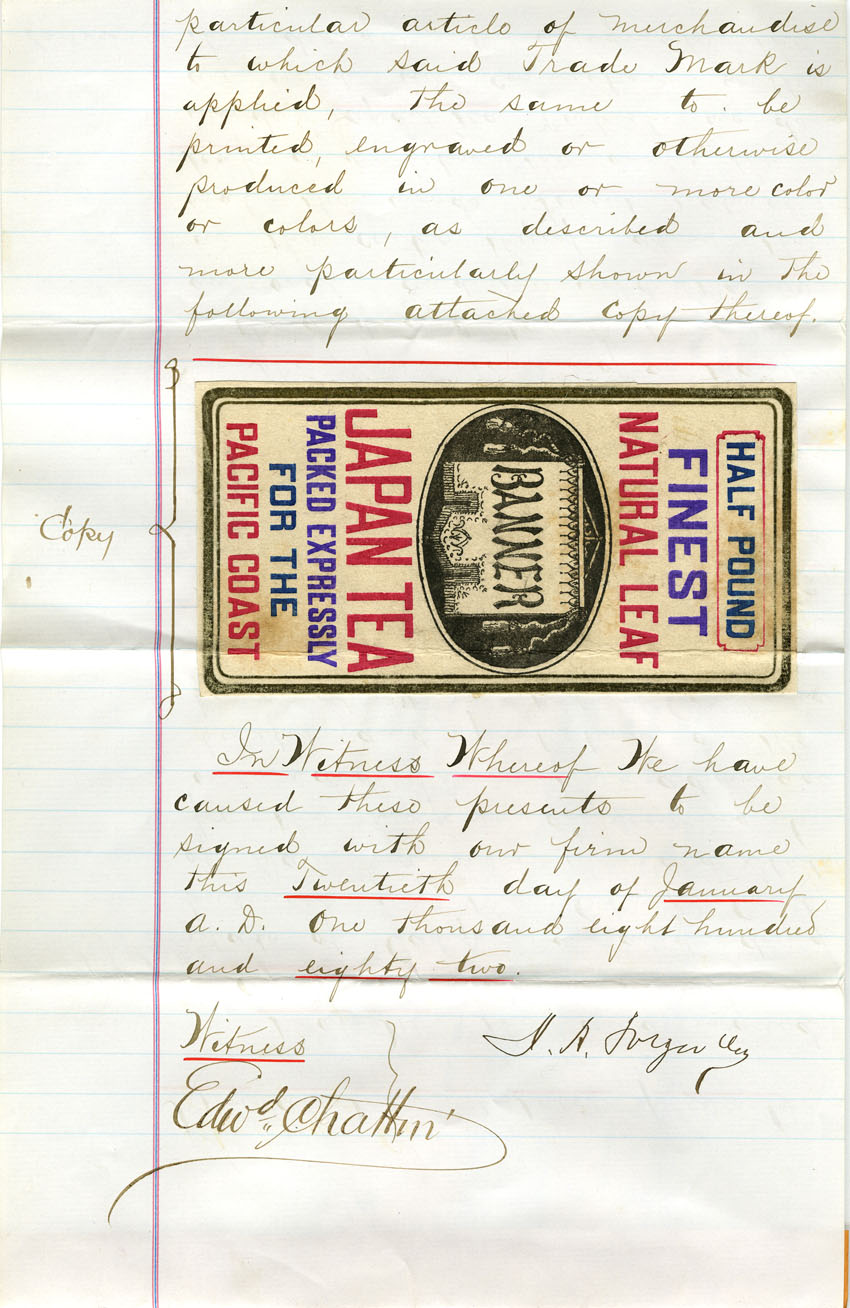 particular article of merchandise
to which said Trade Mark is
applied, the same to be
printed, engraved or otherwise
produced in one or more color
or colors, as described and
more particularly shown in the
following attached copy thereof.
Copy
HALF POUND
FINEST
NATURAL LEAF
BANNER
JAPAN TEA
PACKED EXPRESSLY
FOR THE
PACIFIC COAST
In Witness Whereof We have
caused these presents to be
signed with our firm name
this Twentieth day of January
A. D. One thousand eight hundred
and eighty two.
Witness
Edwd. Chattin
A.